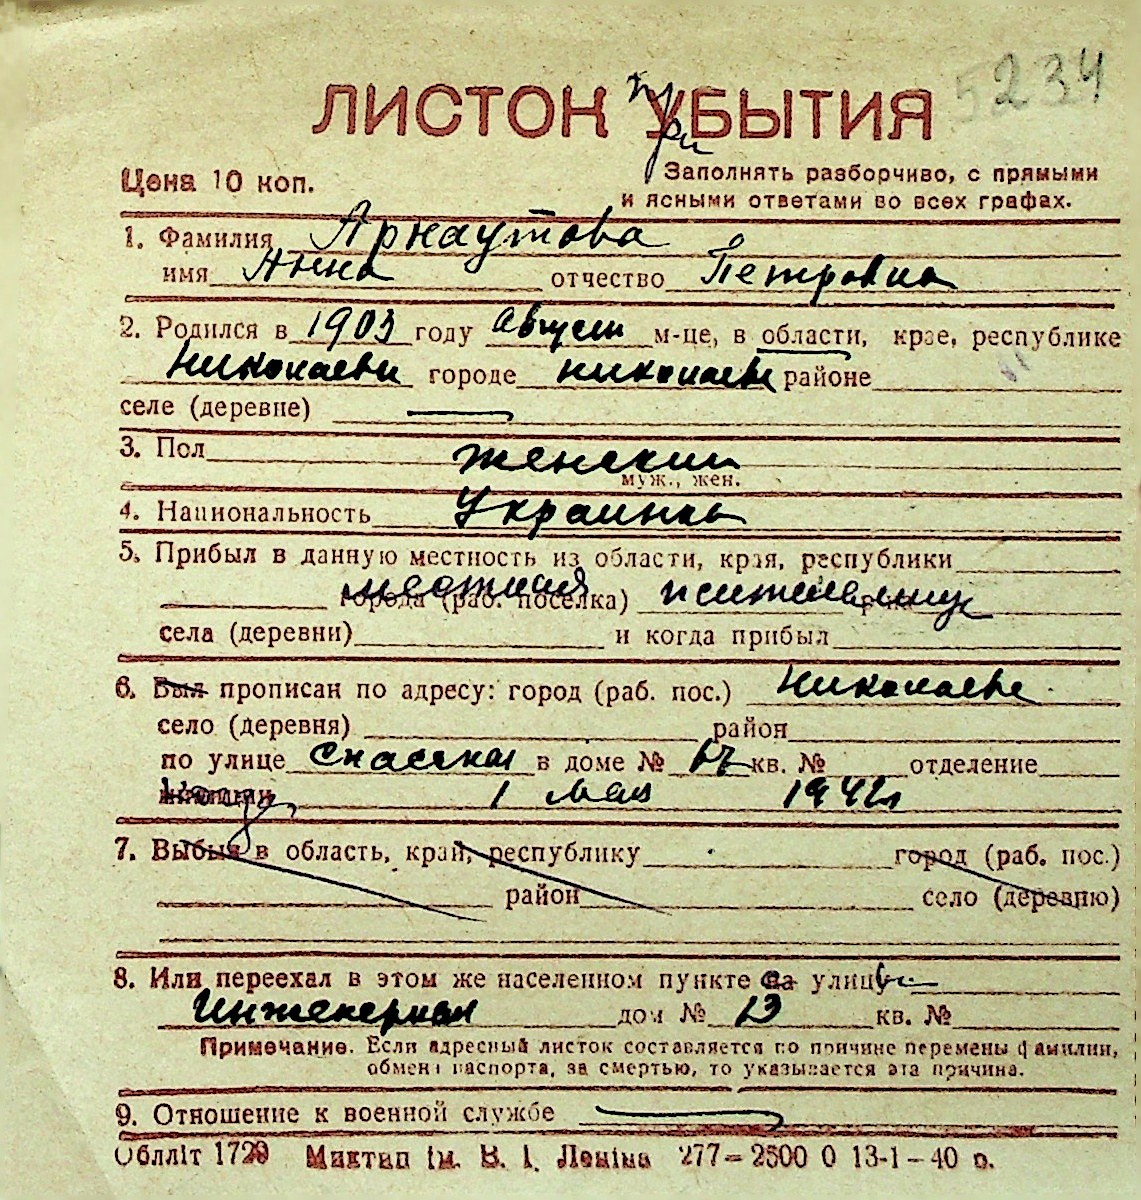 5234
ЛИСТОК УБЫТИЯ
при
Цена 10 коп.
Заполнять разборчиво, с прямыми
и ясными ответами во всех графах.
1. Фамилия Арнаутова
имя Анна отчество Петровна
2. Родился в 1903 году август м-це, в области, крае, республике
Николаеве городе Николаеве районе
селе (деревне)
3. Пол женский
муж., жен.
4. Национальность Украинка
5. Прибыл в данную местность из области, края, республики
местная города (раб. поселка) жительница
села (деревни) и когда прибыл
6. Был прописан по адресу: город (раб. пос.) Николаеве
село (деревня) район
по улице Спасская в доме № кв. № отделение
милиции 1 мая 1942г
7. Выбыл в область, край, республику город (раб. пос.)
район село (деревню)
8. Или переехал в этом же населенном пункте на улицу
Инженерная дом № 13 кв. №
Примечание. Если адресный листок составляется по причине перемены фамилии,
обмена паспорта, за смертью, то указывается эта причина.
9. Отношение к военной службе
Облліт 1729 Миктип ім. В. І. Леніна 277—2500 0 13-1—40 р.